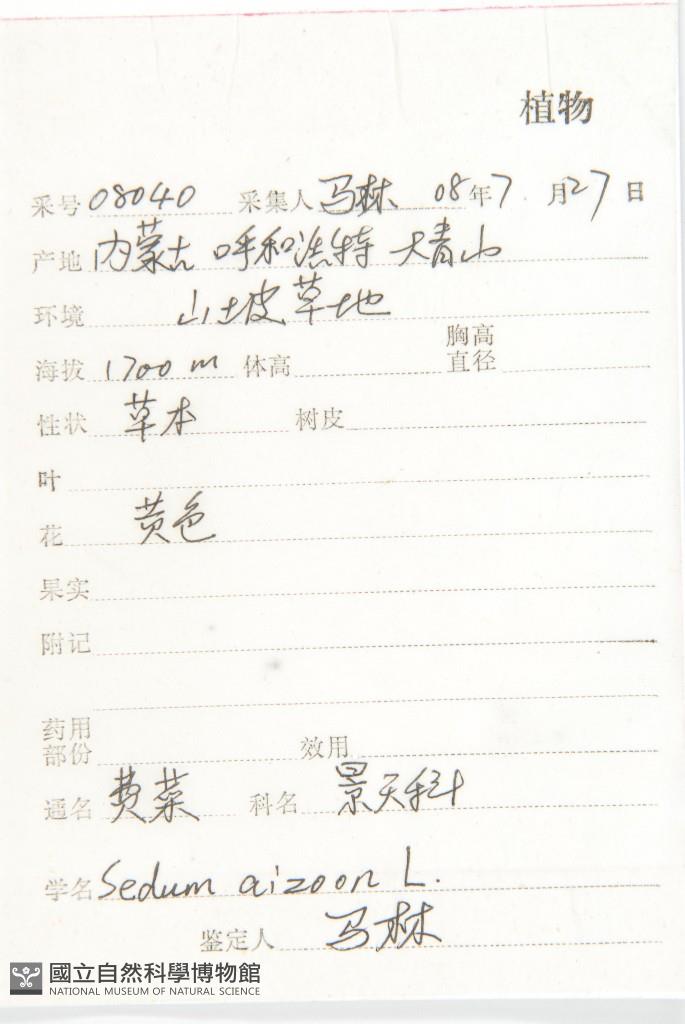 植物
采号 08040 采集人 马林 08年7月27日
产地 内蒙古 呼和浩特 大青山
环境 山坡草地
海拔 1700 m 体高 胸高直径
性状 草本 树皮
叶
花 黄色
果实
附记
药用部份 效用
通名 费菜 科名 景天科
学名 Sedum aizoon L.
鉴定人 马林
國立自然科學博物館
NATIONAL MUSEUM OF NATURAL SCIENCE